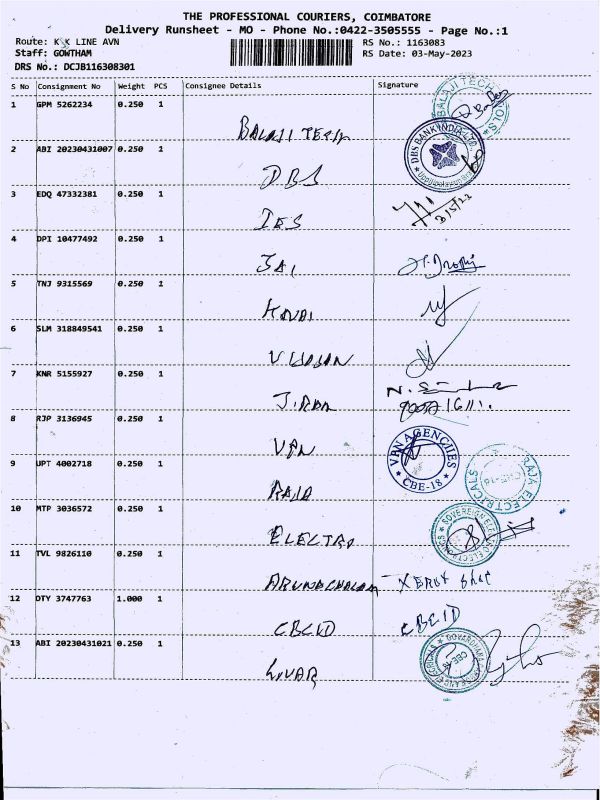 THE PROFESSIONAL COURIERS, COIMBATORE
Delivery Runsheet - MO - Phone No.:0422-3505555 - Page No.:1
Route: K K LINE AVN
RS No.: 1163083
Staff: GOWTHAM
RS Date: 03-May-2023
DRS No.: DCJB116308301
S No Consignment No Weight PCS Consignee Details Signature
1 GPM 5262234 0.250 1
BALAJI TECH
BALAJI TECH
2 ABI 20230431007 0.250 1
DBS
DBS BANK INDIA LTD.
3 EDQ 47332381 0.250 1
IES
4 DPI 10477492 0.250 1
JAI
5 TNJ 9315569 0.250 1
KOVAI
6 SLM 318849541 0.250 1
VIJAYAN
7 KNR 5155927 0.250 1
N.
8 RJP 3136945 0.250 1
VPN
VBN AGENCIES
CBE-18
9 UPT 4002718 0.250 1
RAJA
RAJA ELECTRICALS
10 MTP 3036572 0.250 1
ELECTRO
SOVEREIGN ELECTRO
11 TVL 9826110 0.250 1
ARUNACHALAM
XEROX shop
12 DTY 3747763 1.000 1
CBCID
CBCID
13 ABI 20230431021 0.250 1